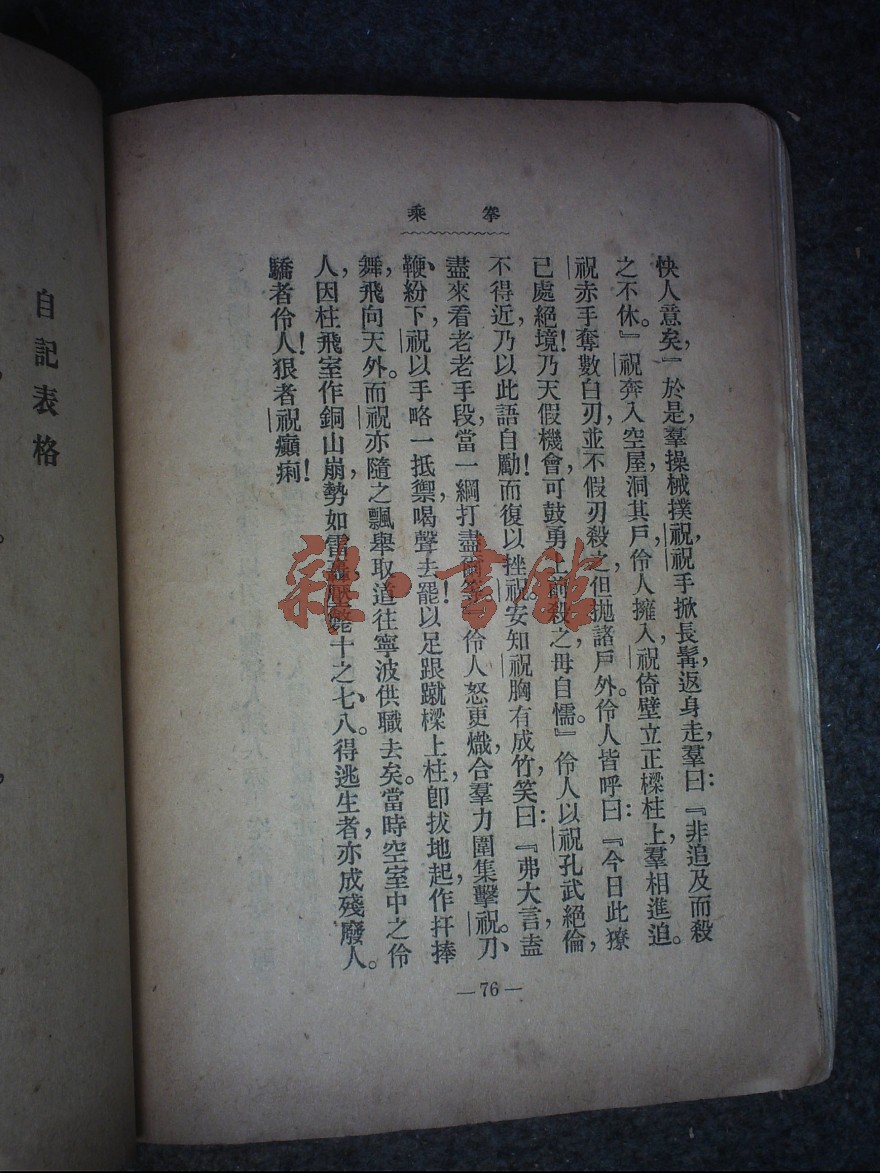 拳乘
快人意矣』於是，羣操械撲祝，祝手掀長髯，返身走，羣曰：『非追及而殺
之不休。』祝奔入空屋，洞其戶，伶人擁入，祝倚壁立正樑柱上，羣相進迫。
祝赤手奪數白刃，並不假刃殺之，但拋諸戶外。伶人皆呼曰：『今日此獠
已處絕境！乃天假機會，可鼓勇上前殺之，毋自懦。』伶人以祝孔武絕倫，
不得近，乃以此語自勵！而復以挫祝。安知祝胸有成竹，笑曰：『弗大言，盍
盡來看老老手段，當一綱打盡 伶人怒更熾，合羣力圍集擊祝。刀、
鞭紛下，祝以手略一抵禦，喝聲去！罷以足跟蹴樑上柱，卽拔地起，作扞捧
舞，飛向天外。而祝亦隨之飄舉，取道往寧波供職去矣。當時空室中之伶
人，因柱飛室作銅山崩，勢如雷 十之七、八。得逃生者，亦成殘廢人。
驕者伶人！狠者祝癲痢！
—76—
自記表格
雜·書館